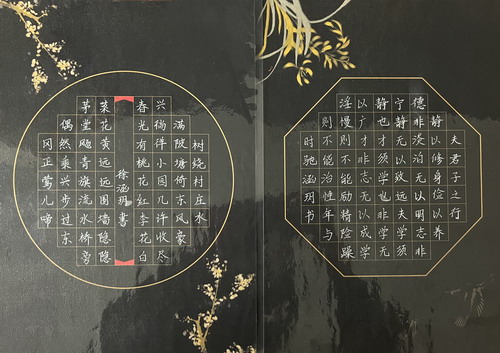 树绕村庄水
满陂塘倚东风豪
兴徜徉小园几许收尽
春光有桃花红李花白
徐涵玥书
菜花黄远远围墙隐隐
茅堂飏青旗流水桥旁
偶然乘兴步过东
冈正莺儿啼
夫君子之行
静以修身俭以养
德非淡泊无以明志非
宁静无以致远夫学须
静也才须学也非学无
以广才非志无以成学
淫慢则不能励精险躁
则不能治性年与
时驰涵玥书